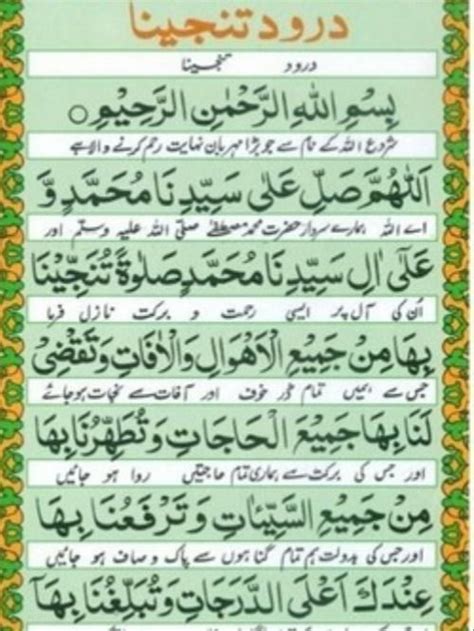 درود تنجینا
درود تنجینا
بِسْمِ اللهِ الرَّحْمٰنِ الرَّحِيْمِ
شروع اللہ کے نام سے جو بڑا مہربان نہایت رحم کرنے والا ہے
اَللّٰهُمَّ صَلِّ عَلٰى سَيِّدِنَا مُحَمَّدٍ وَّ
اے اللہ ہمارے سردار حضرت محمد مصطفےٰ صلی اللہ علیہ وسلم اور
عَلٰٓى اٰلِ سَيِّدِنَا مُحَمَّدٍ صَلٰوةً تُنَجِّيْنَا
اُن کی آل پر ایسی رحمت و برکت نازل فرما
بِهَا مِنْ جَمِيْعِ الْاَهْوَالِ وَالْاٰفَاتِ وَتَقْضِىْ
جس سے ہمیں تمام ڈر خوف اور آفات سے نجات ہوجائے
لَنَا بِهَا جَمِيْعَ الْحَاجَاتِ وَتُطَهِّرُنَا بِهَا
اور جس کی برکت سے ہماری تمام حاجتیں روا ہو جائیں
مِنْ جَمِيْعِ السَّيِّاٰتِ وَتَرْفَعُنَا بِهَا
اور جس کی بدولت ہم تمام گناہوں سے پاک و صاف ہو جائیں
عِنْدَكَ اَعْلَى الدَّرَجَاتِ وَتُبَلِّغُنَا بِهَآ